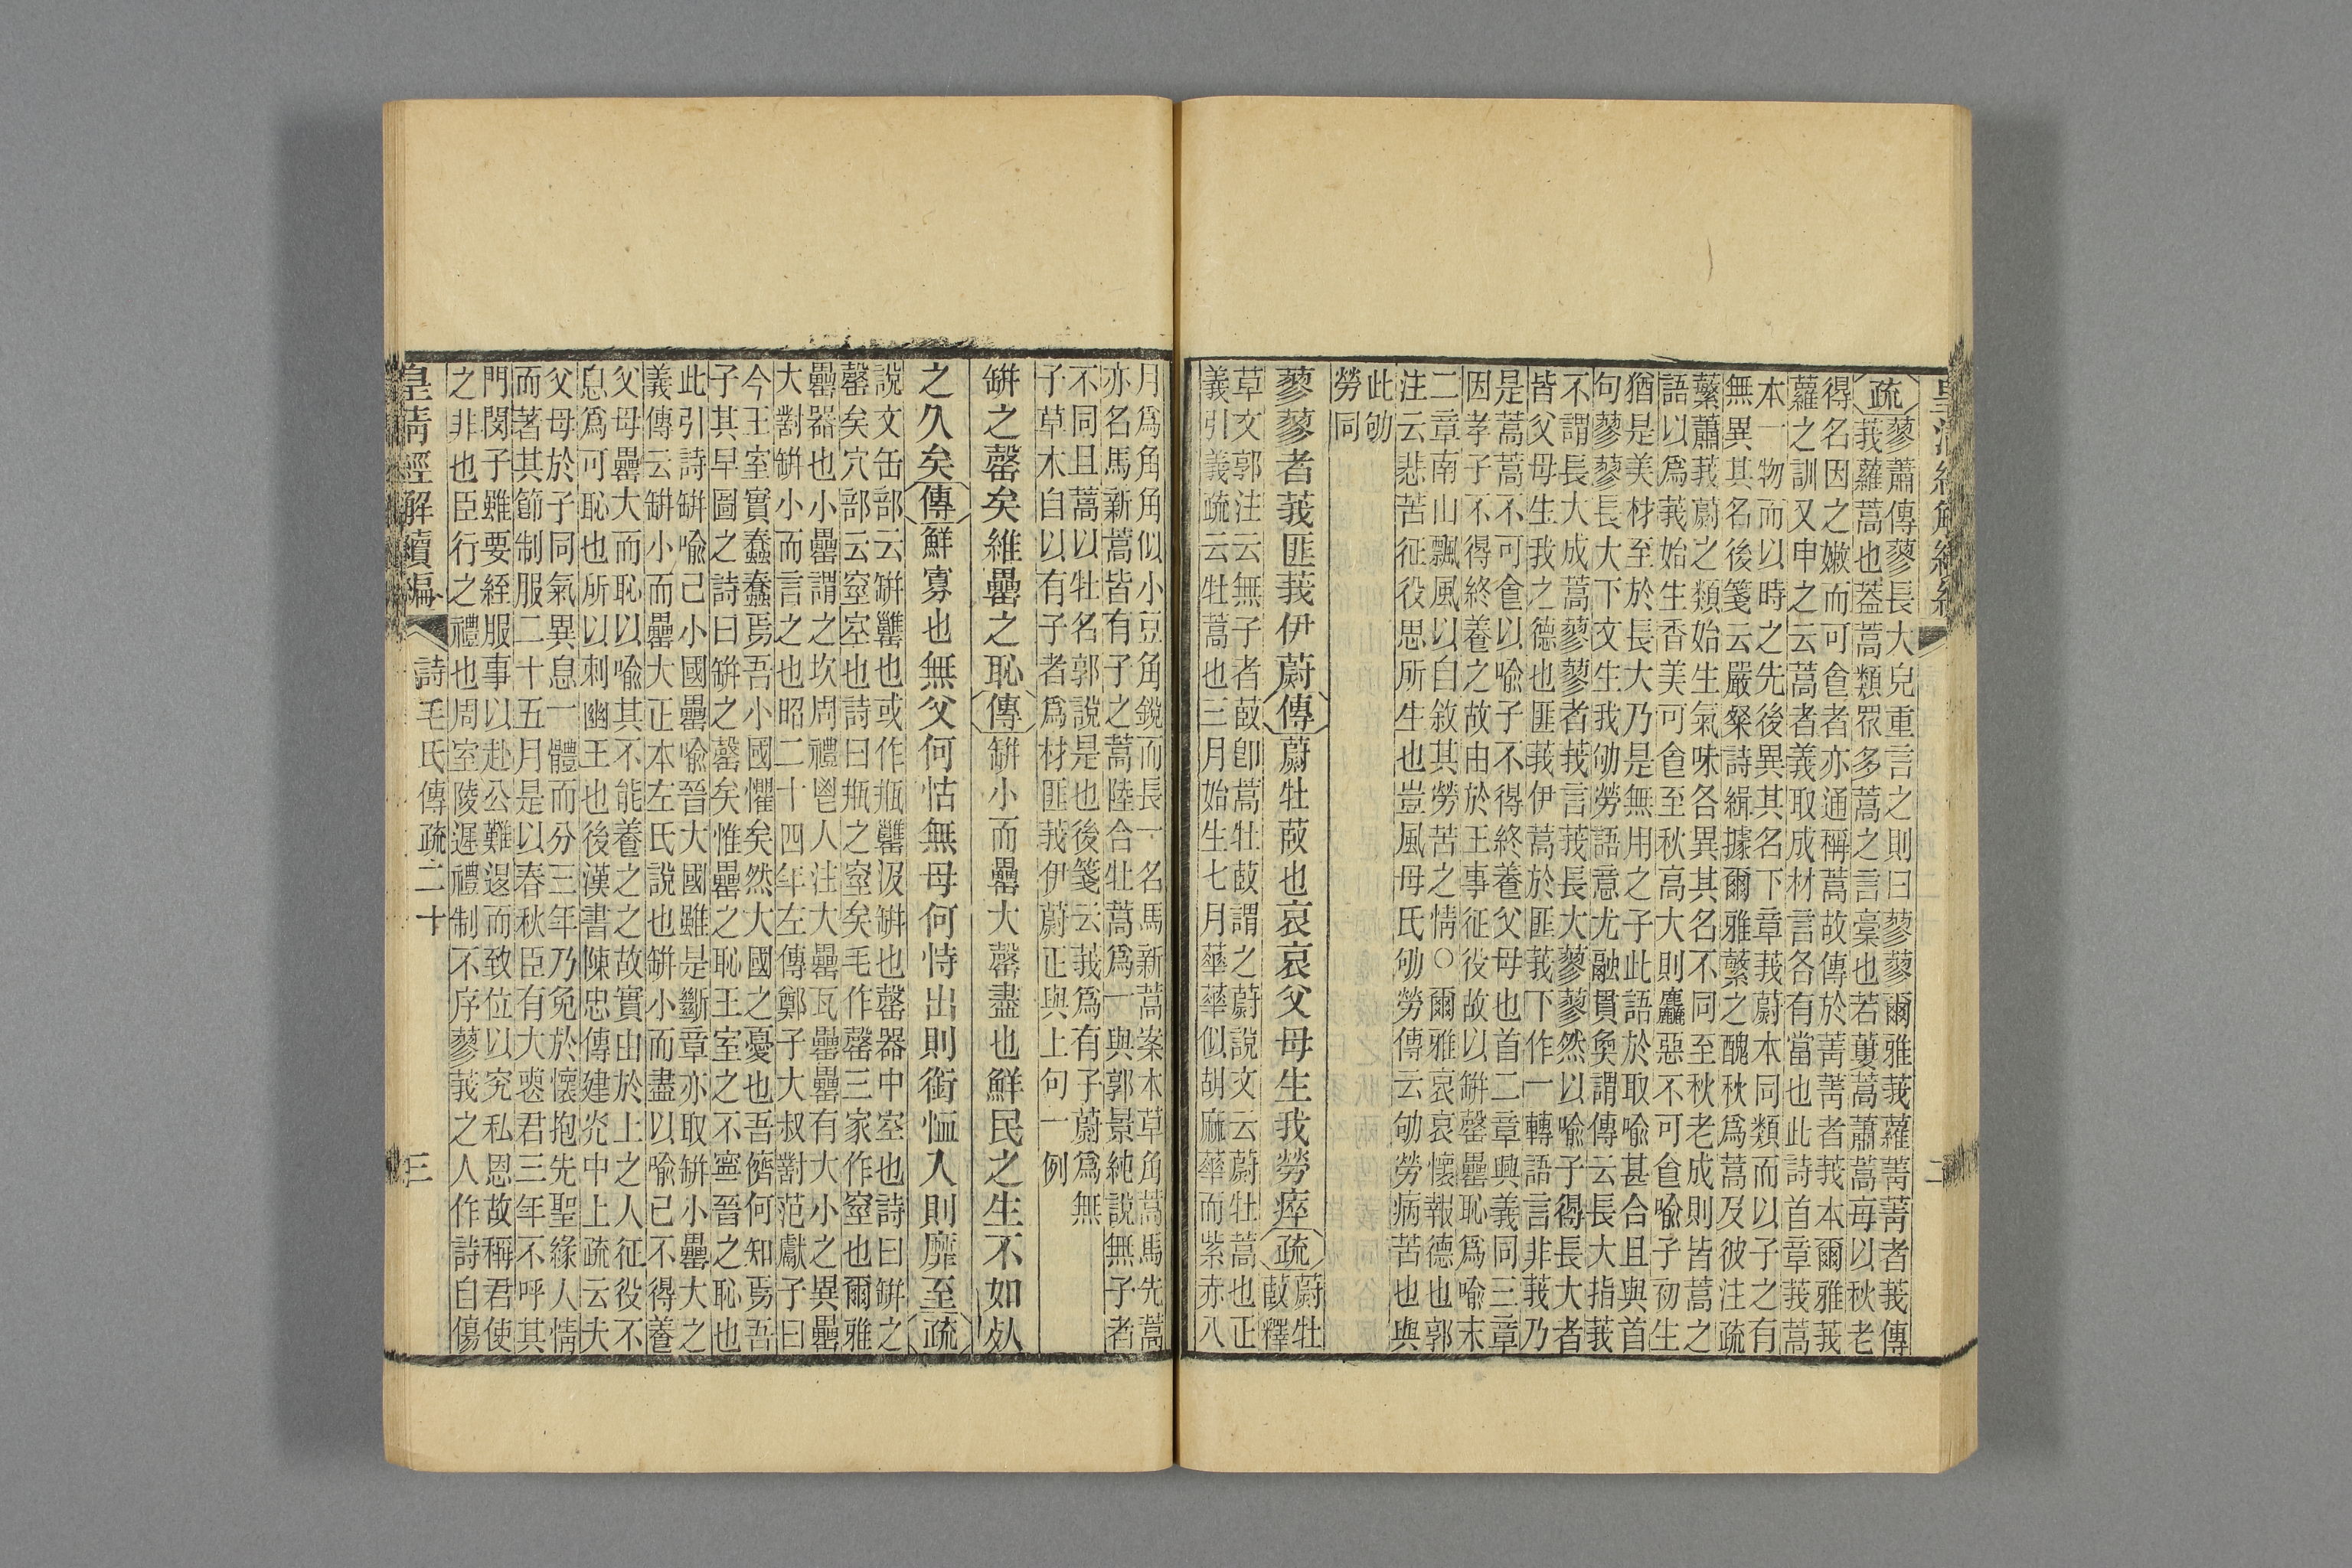 蓼蕭傳蓼長大皃重言之則曰蓼蓼爾雅莪蘿菁菁者莪傳
疏莪蘿蒿也葢蒿類眾多蒿之言稾也若蔞蒿蕭蒿每以秋老
得名因之嫩而可飠者亦通稱蒿故傳於菁菁者莪本爾雅莪
蘿之訓又申之云蒿者義取成材言各有當也此詩首章莪蒿
本一物而以時之先後異其名下章莪蔚本同類而以子之有
無異其名後箋云嚴粲詩緝據爾雅蘩之醜秋爲蒿及彼注疏
蘩蕭莪蔚之類始生氣味各異其名不同至秋老成則皆蒿之
語以爲莪始生香美可飠至秋高大則麤惡不可飠喻子初生
猶是美材至於長大乃是無用之子此語於取喻甚合且與首
句蓼蓼長大下文生我劬勞語意尤融貫奐謂傳云長大指莪
不謂長大成蒿蓼蓼者莪言莪長大蓼蓼然以喻子得長大者
皆父母生我之德也匪莪伊蒿於匪莪下作一轉語言非莪乃
是蒿蒿不可飠以喻子不得終養父母也首二章興義同三章
因孝子不得終養之故由於王事征役故以缾罄罍恥爲喻末
二章南山飄風以自敘其勞苦之情○爾雅哀哀懷報德也郭
注云悲苦征役思所生也豈風母氏劬勞傳云劬勞病苦也與
此劬
勞同
蓼蓼者莪匪莪伊蔚傳蔚牡菣也哀哀父母生我勞瘁疏蔚牡
菣釋
草文郭注云無子者菣卽蒿牡菣謂之蔚說文云蔚牡蒿也正
義引義疏云牡蒿也三月始生七月華華似胡麻華而紫赤八
月爲角角似小豆角銳而長一名馬新蒿案本草角蒿馬先蒿
亦名馬新蒿皆有子之蒿陸合牡蒿爲一與郭景純說無子者
不同且蒿以牡名郭說是也後箋云莪爲有子蔚爲無
子草木自以有子者爲材匪莪伊蔚正與上句一例
缾之罄矣維罍之恥傳缾小而罍大罄盡也鮮民之生不如𣦸
之久矣傳鮮寡也無父何怙無母何恃出則銜恤入則靡至疏
說文缶部云缾䍌也或作甁䍌汲缾也罄器中空也詩曰缾之
罄矣穴部云窒空也詩曰瓶之窒矣毛作罄三家作窒也爾雅
罍器也小罍謂之坎周禮鬯人注大罍瓦罍罍有大小之異罍
大對缾小而言之也昭二十四年左傳鄭子大叔對范獻子曰
今王室實蠢蠢焉吾小國懼矣然大國之憂也吾儕何知焉吾
子其早圖之詩曰缾之罄矣惟罍之恥王室之不寧晉之恥也
此引詩缾喻己小國罍喻晉大國雖是斷章亦取缾小罍大之
義傳云缾小而罍大正本左氏說也缾小而盡以喻己不得養
父母罍大而恥以喻其不能養之之故實由於上之人征役不
息爲可恥也所以刺幽王也後漢書陳忠傳建炎中上疏云夫
父母於子同氣異息一體而分三年乃免於懷抱先聖緣人情
而著其節制服二十五月是以春秋臣有大喪君三年不呼其
門閔子雖要絰服事以赴公難退而致位以究私恩故稱君使
之非也臣行之禮也周室陵遲禮制不序蓼莪之人作詩自傷
皇清經解續編 詩毛氏傳疏二十 三